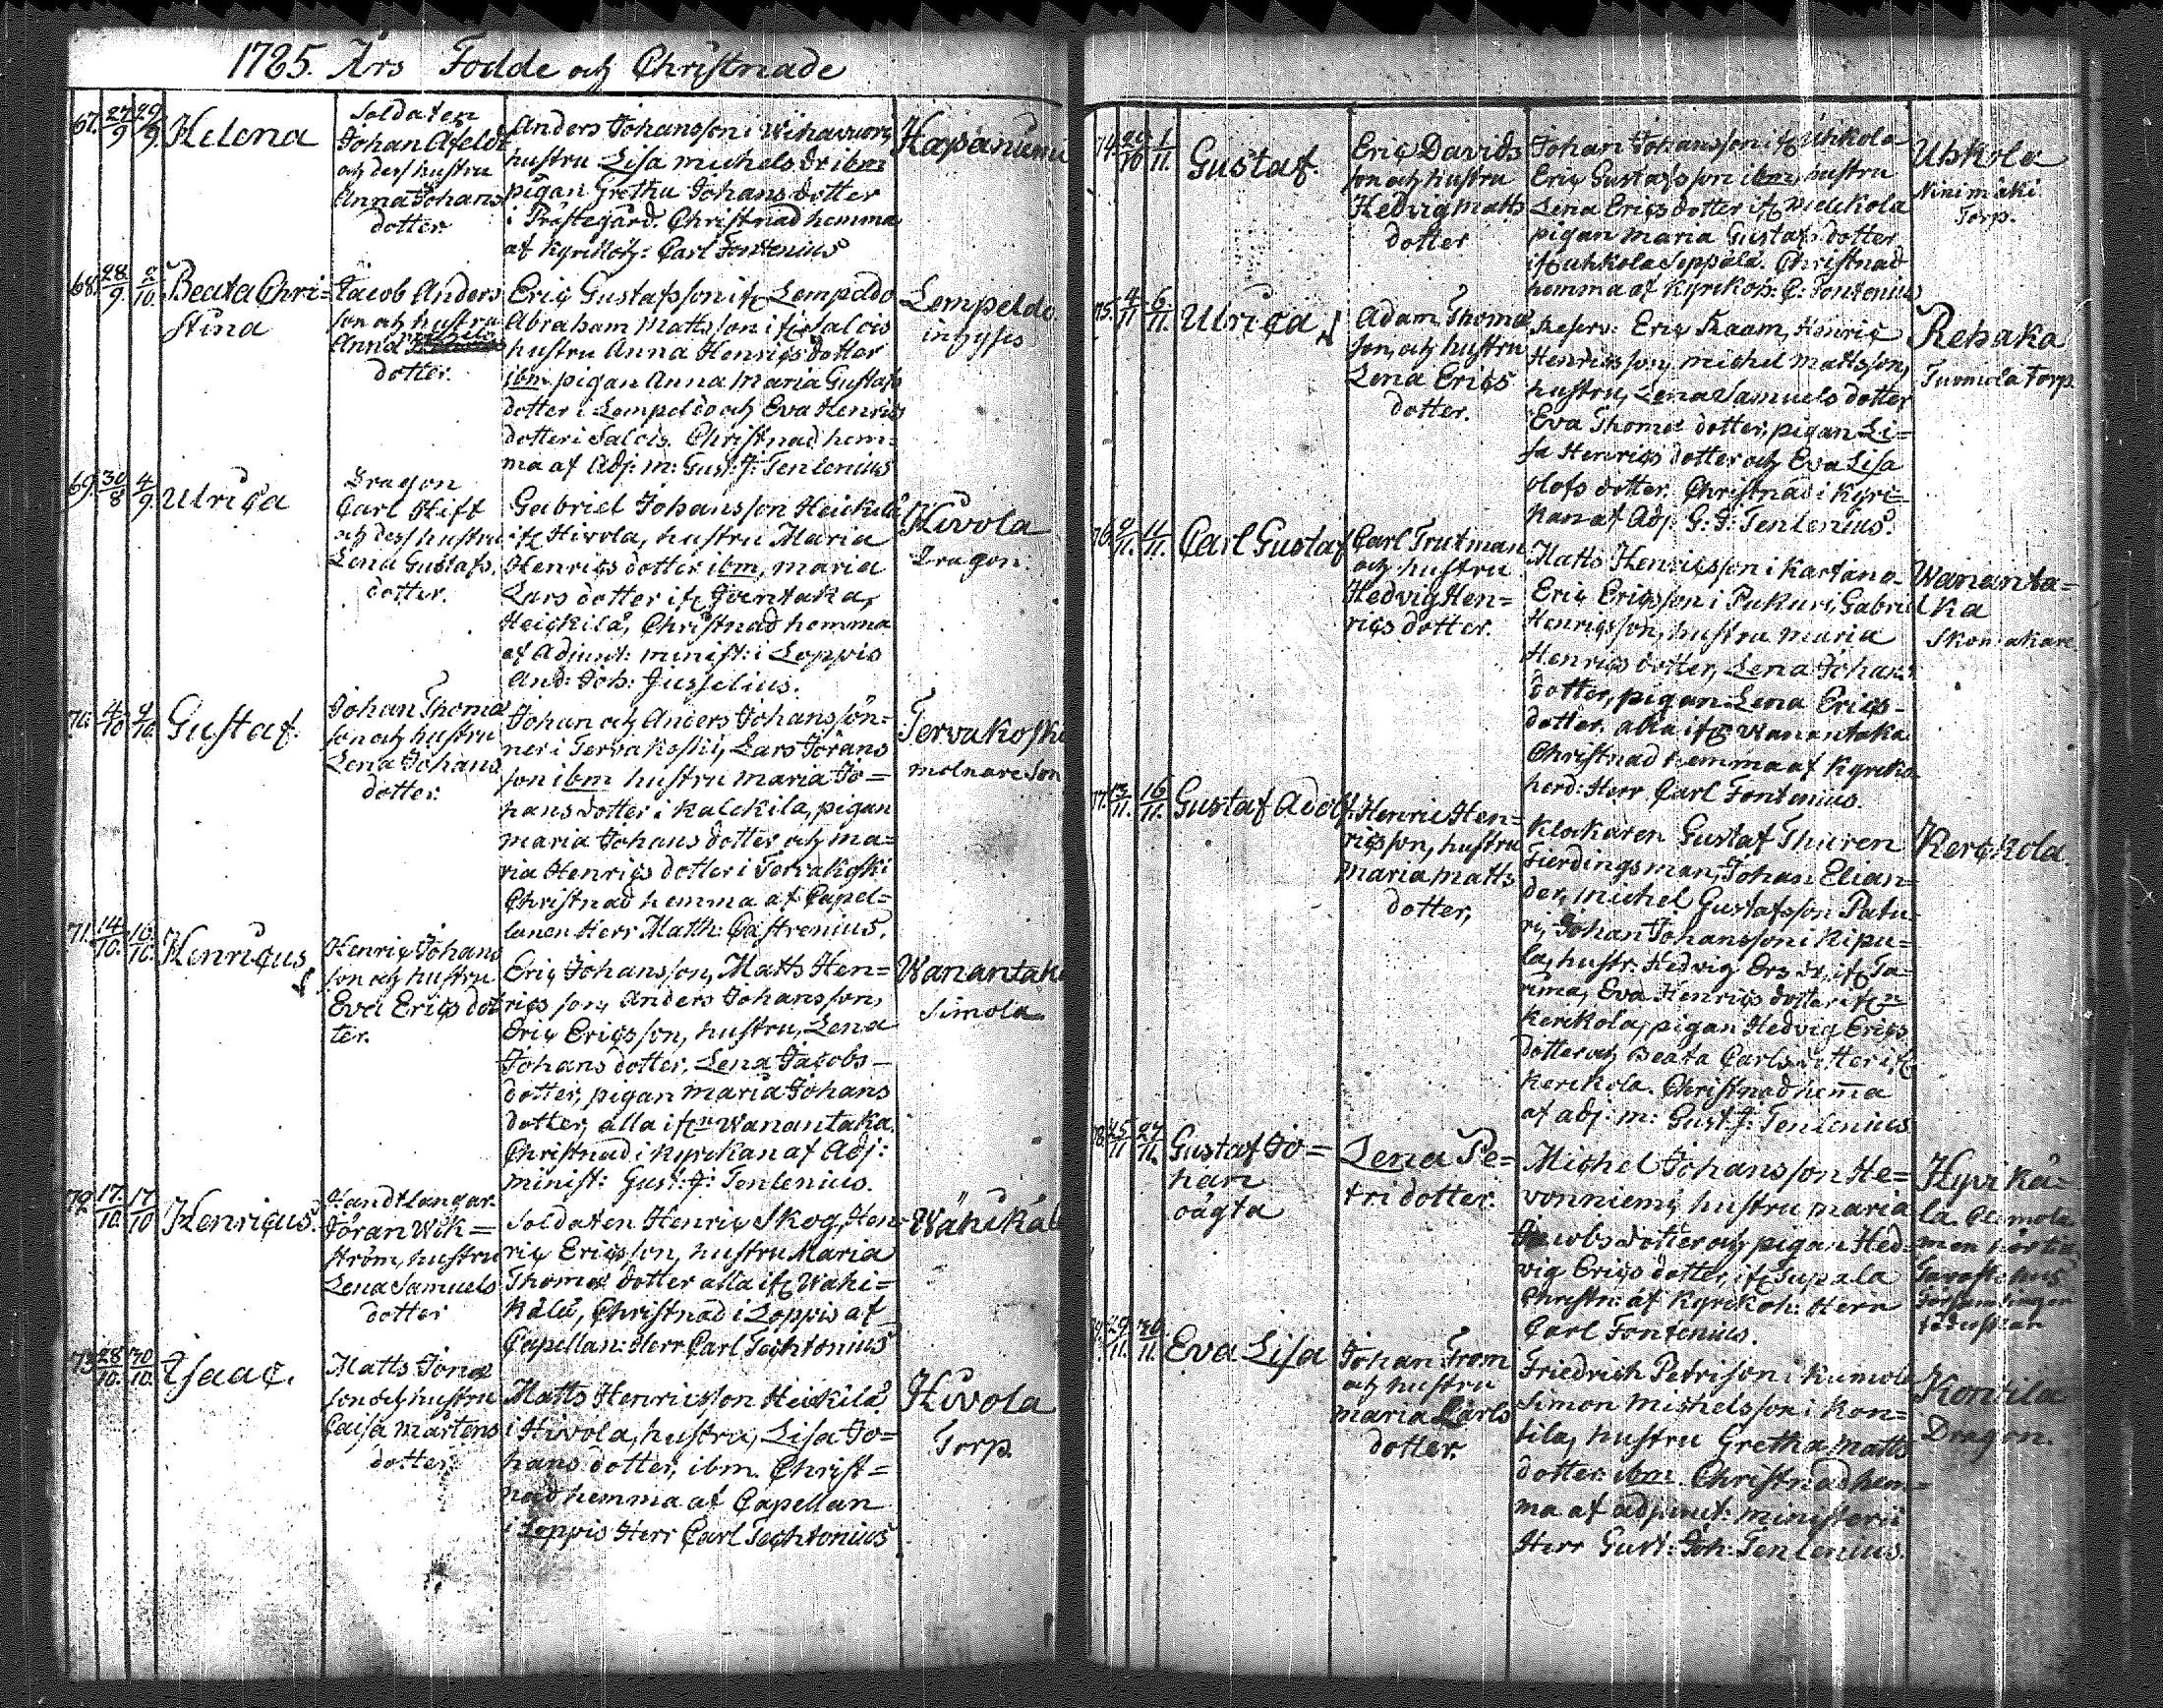 1785. Års Födde och Christnade
67. 27/9 29/9 Helena
Soldaten
Johan Afeldt
och dess hustru
Anna Johans
dotter
Anders Johansson i Wihavuori
hustru Lisa Michels dr ibm
pigan Gretha Johans dotter
i Prästegård. Christnad hemma
af Kyrkoh: Carl Fontenius
Kapanum
68. 28/9 2/10 Beata Chri=
stina
Jacob Anders
son och hustru
Anna
dotter.
Eric Gustafsson ifr Lempeldo
Abraham Mattsson ifr Salois
hustru Anna Henrics dotter
ibm pigan Anna Maria Gustafs
dotter i Lempeldo och Eva Henrics
dotter i Salois. Christnad hem=
ma af Adj: m: Gust: J: Tenlenius
Lempeldo
inhyses
69. 30/8 4/9 Ulrica
Dragon
Carl Hift
och dess hustru
Lena Gustafs
dotter.
Gabriel Johansson Heickilä
ifr Hivola, hustru Maria
Henrics dotter ibm, Maria
Lars dotter ifr Joentaka,
Heickilä, Christnad hemma
af Adjunct: minist: i Loppis
And: Joh: Jusselius.
Hivola
Dragon.
70. 4/10 9/10 Gustaf.
Johan Thomæ
son och hustru
Lena Johans
dotter.
Johan och Anders Johanssön=
ner i Tervakoski, Lars Jörans
son ibm hustru Maria Jo=
hans dotter i Kalckila, pigan
Maria Johans dotter och Ma=
ria Henrics dotter i Tervakoski
Christnad hemma af Capel=
lanen Herr Math: Castrenius.
Tervakoski
molnare Son
71. 14/10 16/10 Henricus
Henric Johans
son och hustru
Eva Erics dot
ter.
Eric Johansson, Matts Hen=
rics son, Anders Johansson,
Eric Ericsson, hustru, Lena
Johans dotter, Lena Jacobs-
dotter, pigan Maria Johans
dotter, alla ifrn Wanantaka.
Christnad i Kyrckan af Adj:
minist: Gust: J: Tenlenius.
Wanantaka
Simola
72. 17/10 17/10 Henricus.
Handtlangar.
Jöran Wik=
ström, hustru
Lena Samuels
dotter
Soldaten Henric Skog, Hen=
ric Ericsson, hustru Maria
Thomæ dotter alla ifr Wähi=
kälä, Christnad i Loppis af
Capellan: Herr Carl Techtonius
Wähikäl
73. 28/10 30/10 Isaac.
Matts Jonæ
son och hustru
Caisa Mårtens
dotter
Matts Henricsson Heickilä
i Hivola, hustru, Lisa Jo=
hans dotter, ibm. Christ=
nad hemma af Capellan
i Loppis Herr Carl Techtonius
Hivola
Torp.
74. 29/10 1/11. Gustaf.
Eric Davids
son och hustru
Hedvig Matts
dotter
Johan Johansson ifr Uhkola
Eric Gustafsson ibm, hustru
Lena Erics dotter ifr Melckola
pigan Maria Gustafs dotter
ifr Uhkola Seppälä. Christnad
hemma af Kyrkoh: C: Fontenius
Uhkola
Ninimäki
Torp.
75. 4/11 6/11. Ulrica
Adam Thomæ
son, och hustru
Lena Erics
dotter.
Reserv: Eric Raam, Henric
Henricsson, Michel Mattsson,
hustru, Lena Samuels dotter
Eva Thomæ dotter, pigan Li=
sa Henrics dotter och Eva Lisa
Olofs dotter. Christnad i Kyri=
kan af Adj: G: J: Tenlenius.
Rehaka
Tunnola Torp
76. 9/11. 11/11. Carl Gustaf
Carl Trutman
och hustru
Hedvig Hen=
rics dotter.
Matts Henricsson i Kartano
Eric Ericsson i Pukuri, Gabriel
Henricsson, hustru Maria
Henrics dotter, Lena Johans
dotter, pigan Lena Erics-
dotter, alla ifr Wanantaka
Christnad hemma af Kyrko
herd: Herr Carl Fontenius.
Wananta=
ka
Skomakare
77. 13/11. 16/11. Gustaf Adolf
Henric Hen=
ricsson, hustru
Maria Matts
dotter,
Klockaren Gustaf Thuren
Fierdingsman, Johan Elian=
der, Michel Gustafsson Patu=
ri, Johan Johansson i Kipu=
la, hustr: Hedvig Ers dr, ifr Ta=
rima, Eva Henrics dotter ifrn
Kerckola, pigan Hedvig Erics
dotter och Beata Carls dotter ifr
Kerckola. Christnad hemma
af adj: m: Gust: J: Tenlenius
Kerckola.
78. 25/11 27/11. Gustaf Jo=
han
oägta
Lena Pe=
tri dotter.
Michel Johansson He=
vonniemi, hustru Maria
Jacobs dotter och pigan Hed=
vig Erics dotter, ifr Supala
Christn: af Kyrkoh: Herr
Carl Fontenius.
Hyvikä=
la.
men hör till
Tavastehus
Församlingen
79. 29/11. 30/11. Eva Lisa
Johan From
och hustru
Maria Carls
dotter.
Friedrich Petrison i Kumola
Simon Michelsson i Kon=
tila, hustru Gretha Matts
dotter: ibm. Christnad hem=
ma af adjunct: ministerii
Herr Gust: Joh: Tenlenius.
Kontila
Dragon.